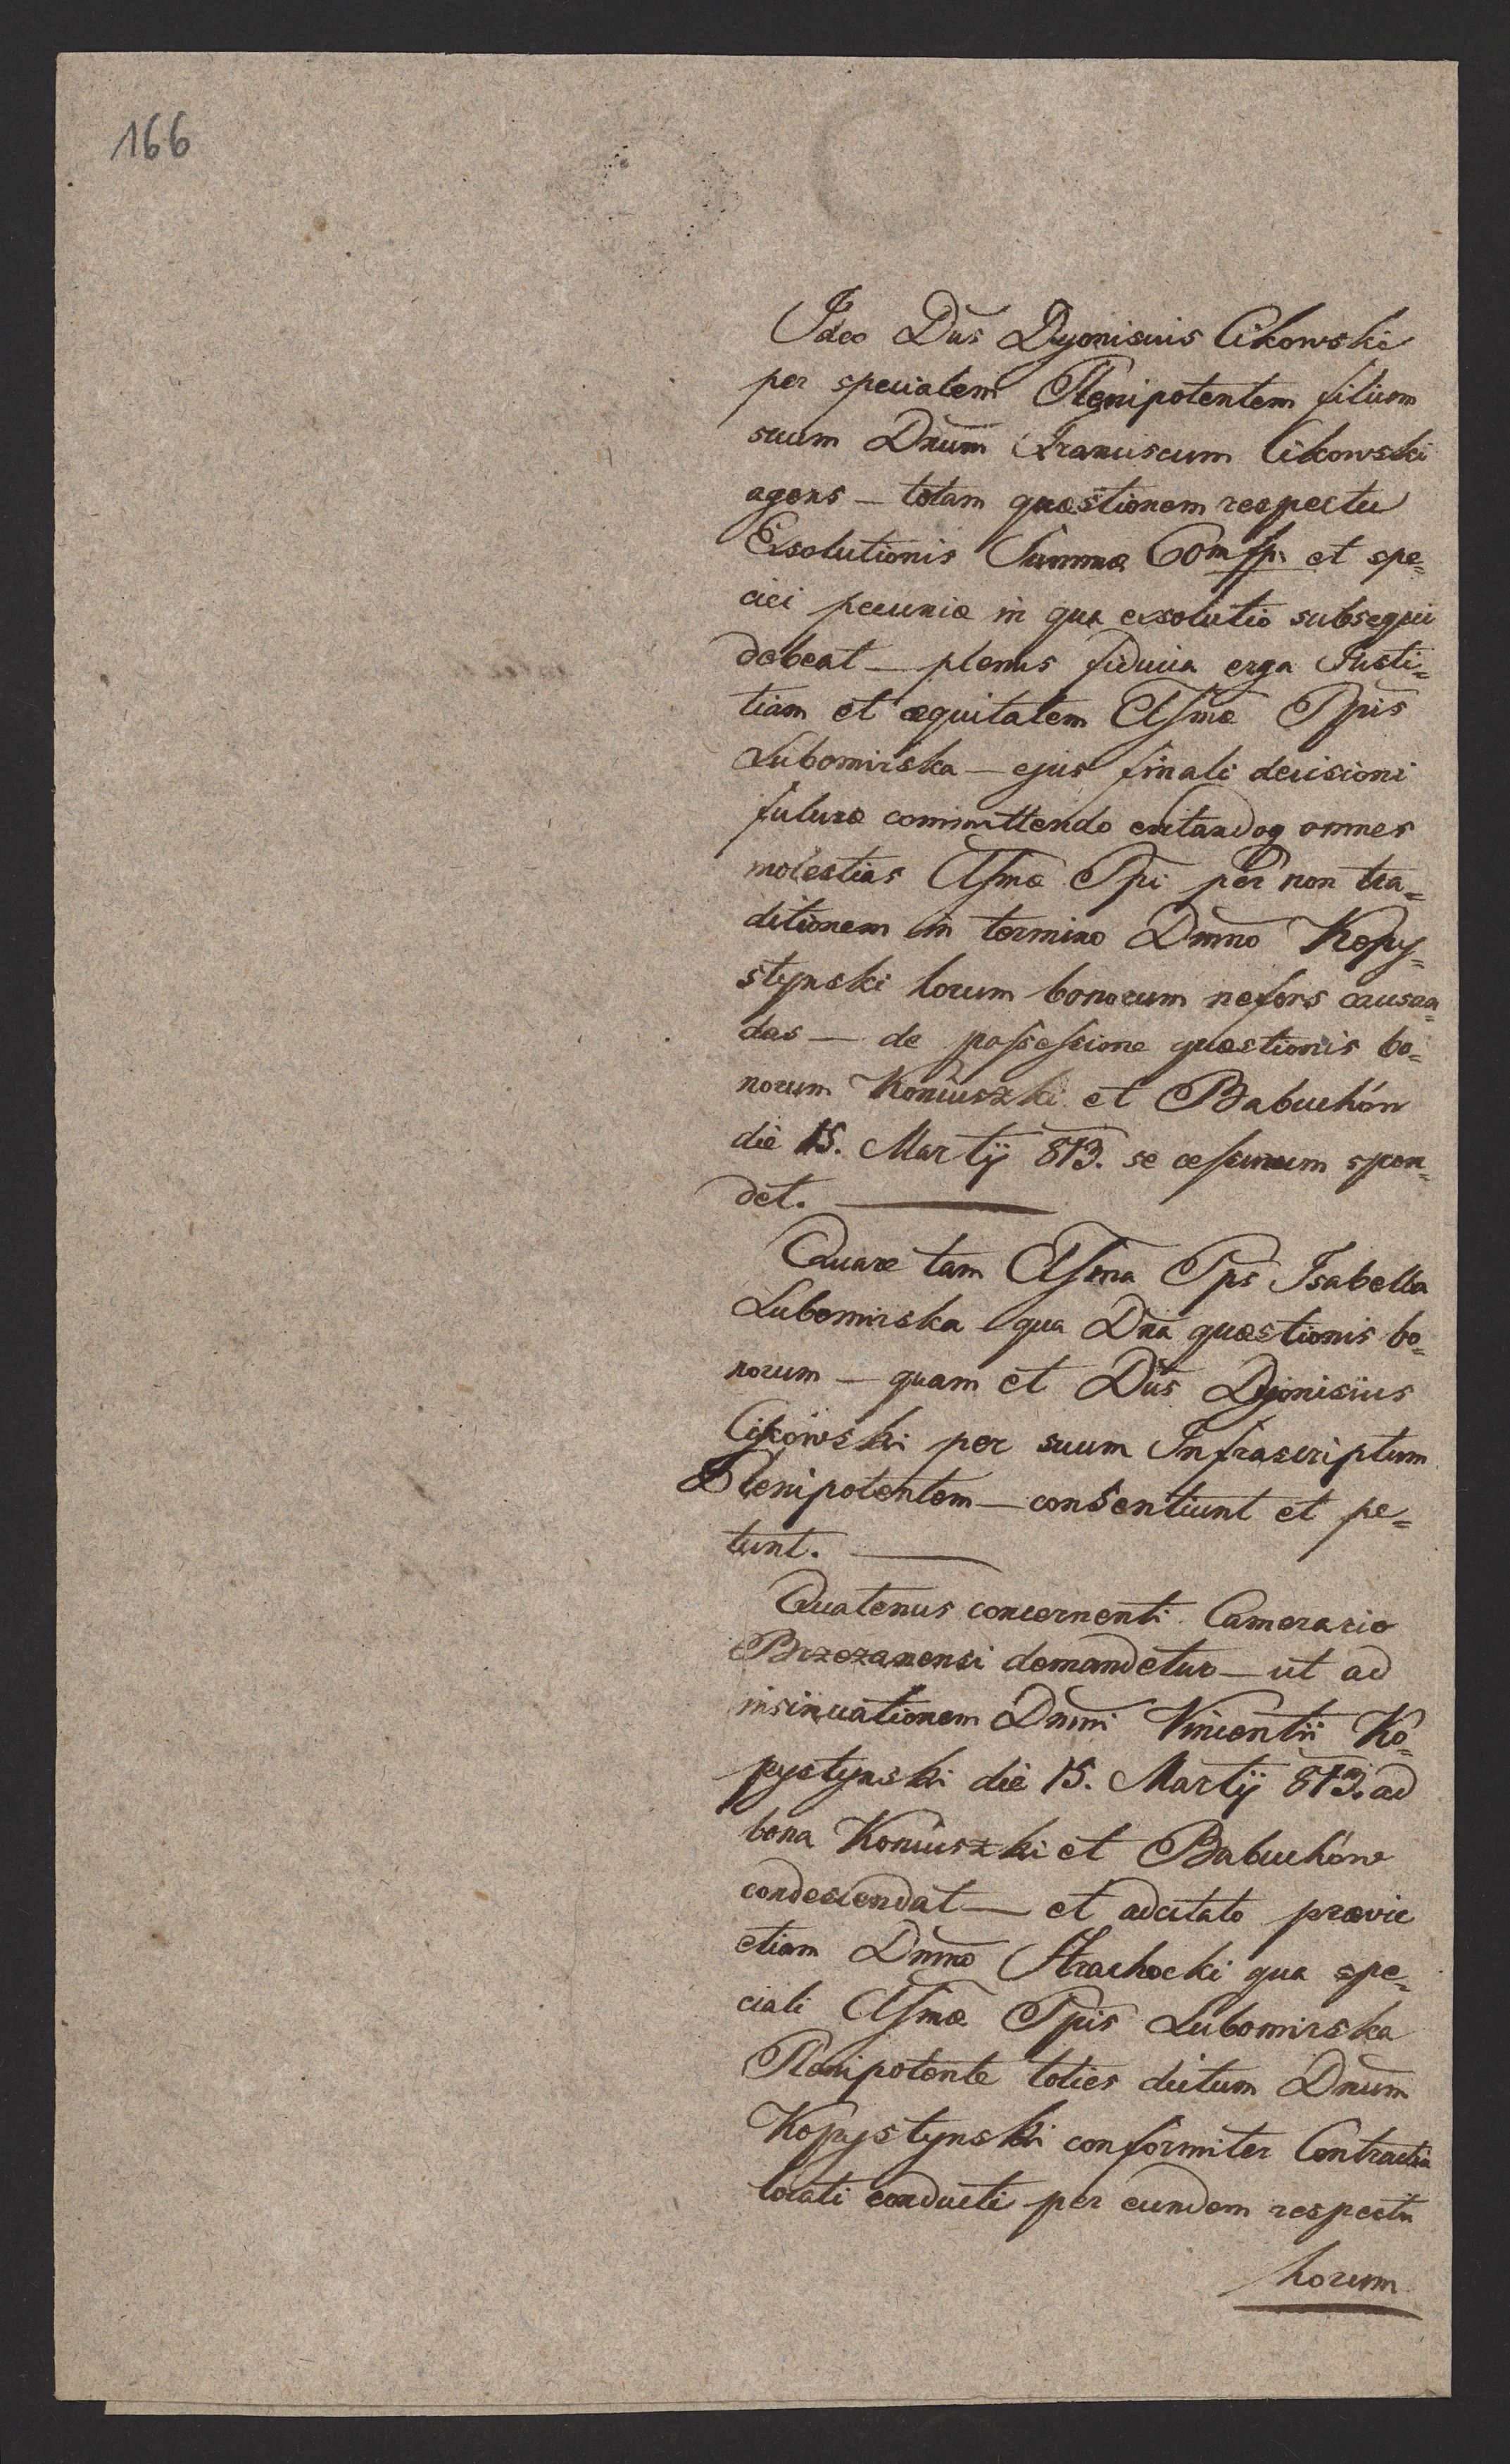 166
Ideo Dūs Dyonisius Cikowski
per specialem Plenipotentem filium
suum Dnum Franciscum Cikowski
agens — totam quæstionem respectu
Exsolutionis Summæ 60m fp. et spe=
ciei pecuniæ in qua exsolutio subsequi
debeat — plenus fiducia erga Justi=
tiam et æquitatem Clsmæ Ppis
Lubomirska — ejus finali decisioni
futuræ committendo evitandoq omnes
molestias Clsmæ Ppi per non tra=
ditionem in termino Dnno Kopy=
stynski horum bonorum nefors causan=
das — de possessione quæstionis bo=
norum Koniuszki et Babuchón
die 15. Martij 813. se cessurum spon=
det.
Quare tam Clsma Pps Isabella
Lubomirska qua Dna quæstionis bo=
norum — quam et Dūs Dyonisius
Cikowski per suum Infrascriptum
Plenipotentem — consentiunt et pe=
tunt.
Quatenus concernenti Camerario
Brzezanensi demandetur — ut ad
insinuationem Dnni Vincentii Ko=
pystynski die 15. Martij 813. ad
bona Koniuszki et Babuchów
condescendat — et adcitato prævie
etiam Dnno Strachocki qua spe=
ciali Clsmæ Ppis Lubomirska
Plenipotente toties dictum Dnum
Kopystynski conformiter Contractui
locati conducti per eundem respectu
horum